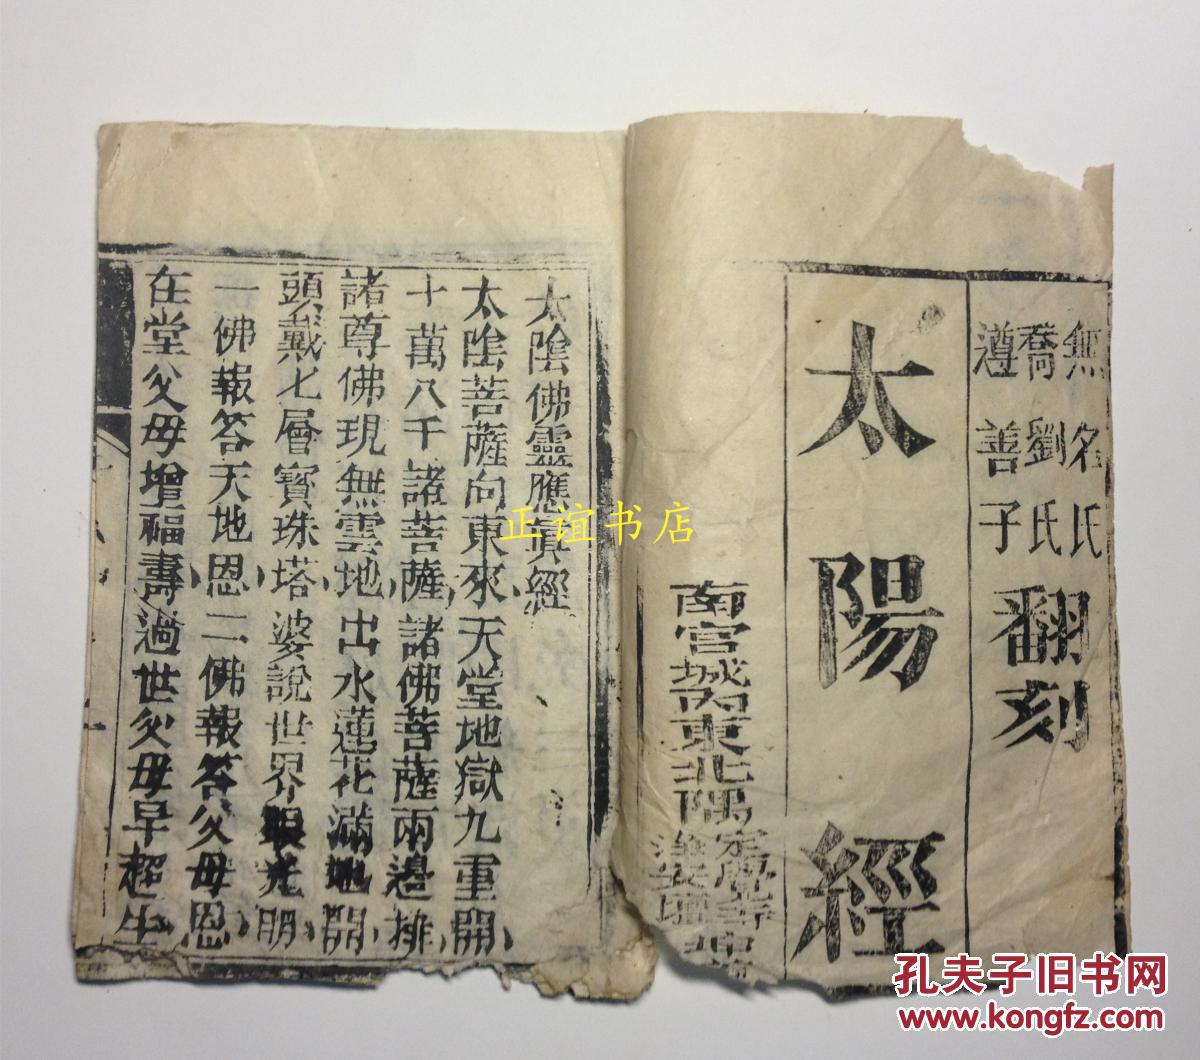 無名氏
喬劉氏
遵善子
翻刻
太陽經
南宮城內東北隅
太陰佛靈應眞經
太陰菩薩向東來天堂地獄九重開
十萬八千諸菩薩諸佛菩薩兩邊排
諸尊佛現無雲地出水蓮花滿地開
頭戴七層寶珠塔婆說世界眼光明
一佛報答天地恩二佛報答父母恩
在堂父母增福壽過世父母早超生
正谊书店
孔夫子旧书网
www.kongfz.com